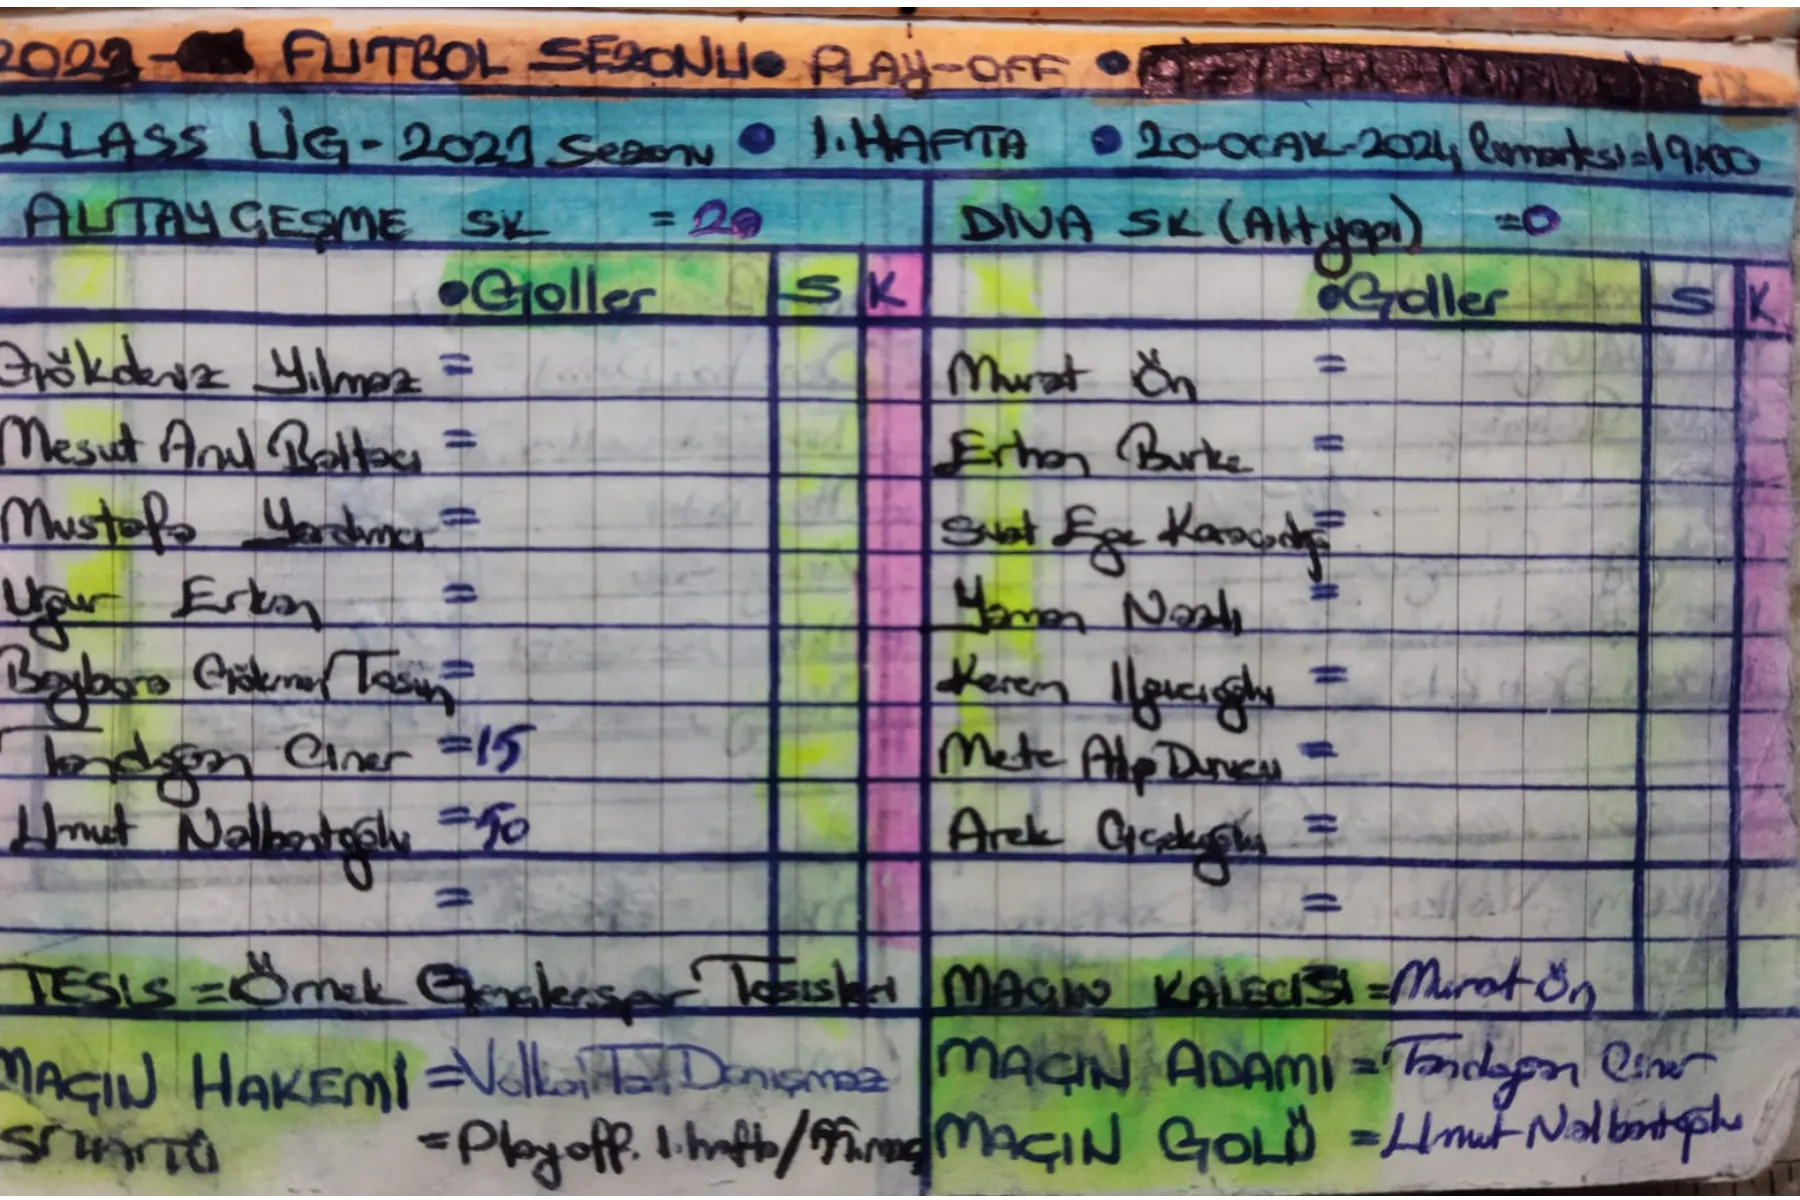 2023- FUTBOL SEZONU • PLAY-OFF •
KLASS LİG-2023 Sezonu • 1.HAFTA • 20-OCAK-2024 19:00
ALTAY ÇEŞME SK = 20
DIVA SK (Altyapı) =0
•Goller S K
•Goller S K
Gökdeniz Yılmaz =
Murat Ön =
Mesut Anıl Baltacı =
Erhan Burke =
Mustafa Yardımcı =
Suat Ege =
Uğur Erkan =
Yaman Nazlı =
Baybora Gökmen Tosun =
Keren Ilgıcıoğlu =
Tandoğan Ciner =15
Mete Alp Durucu =
Umut Nalbantoğlu =
Arek Çiçekoğlu =
=
=
TESİS = Örnek Gençlerspor Tesisleri
MAÇIN KALECİSİ =Murat Ön
MAÇIN HAKEMİ = Danışmaz
MAÇIN ADAMI =Tandoğan Ciner
STATÜ =Play off. 1.hafta/
MAÇIN GOLÜ =Umut Nalbantoğlu